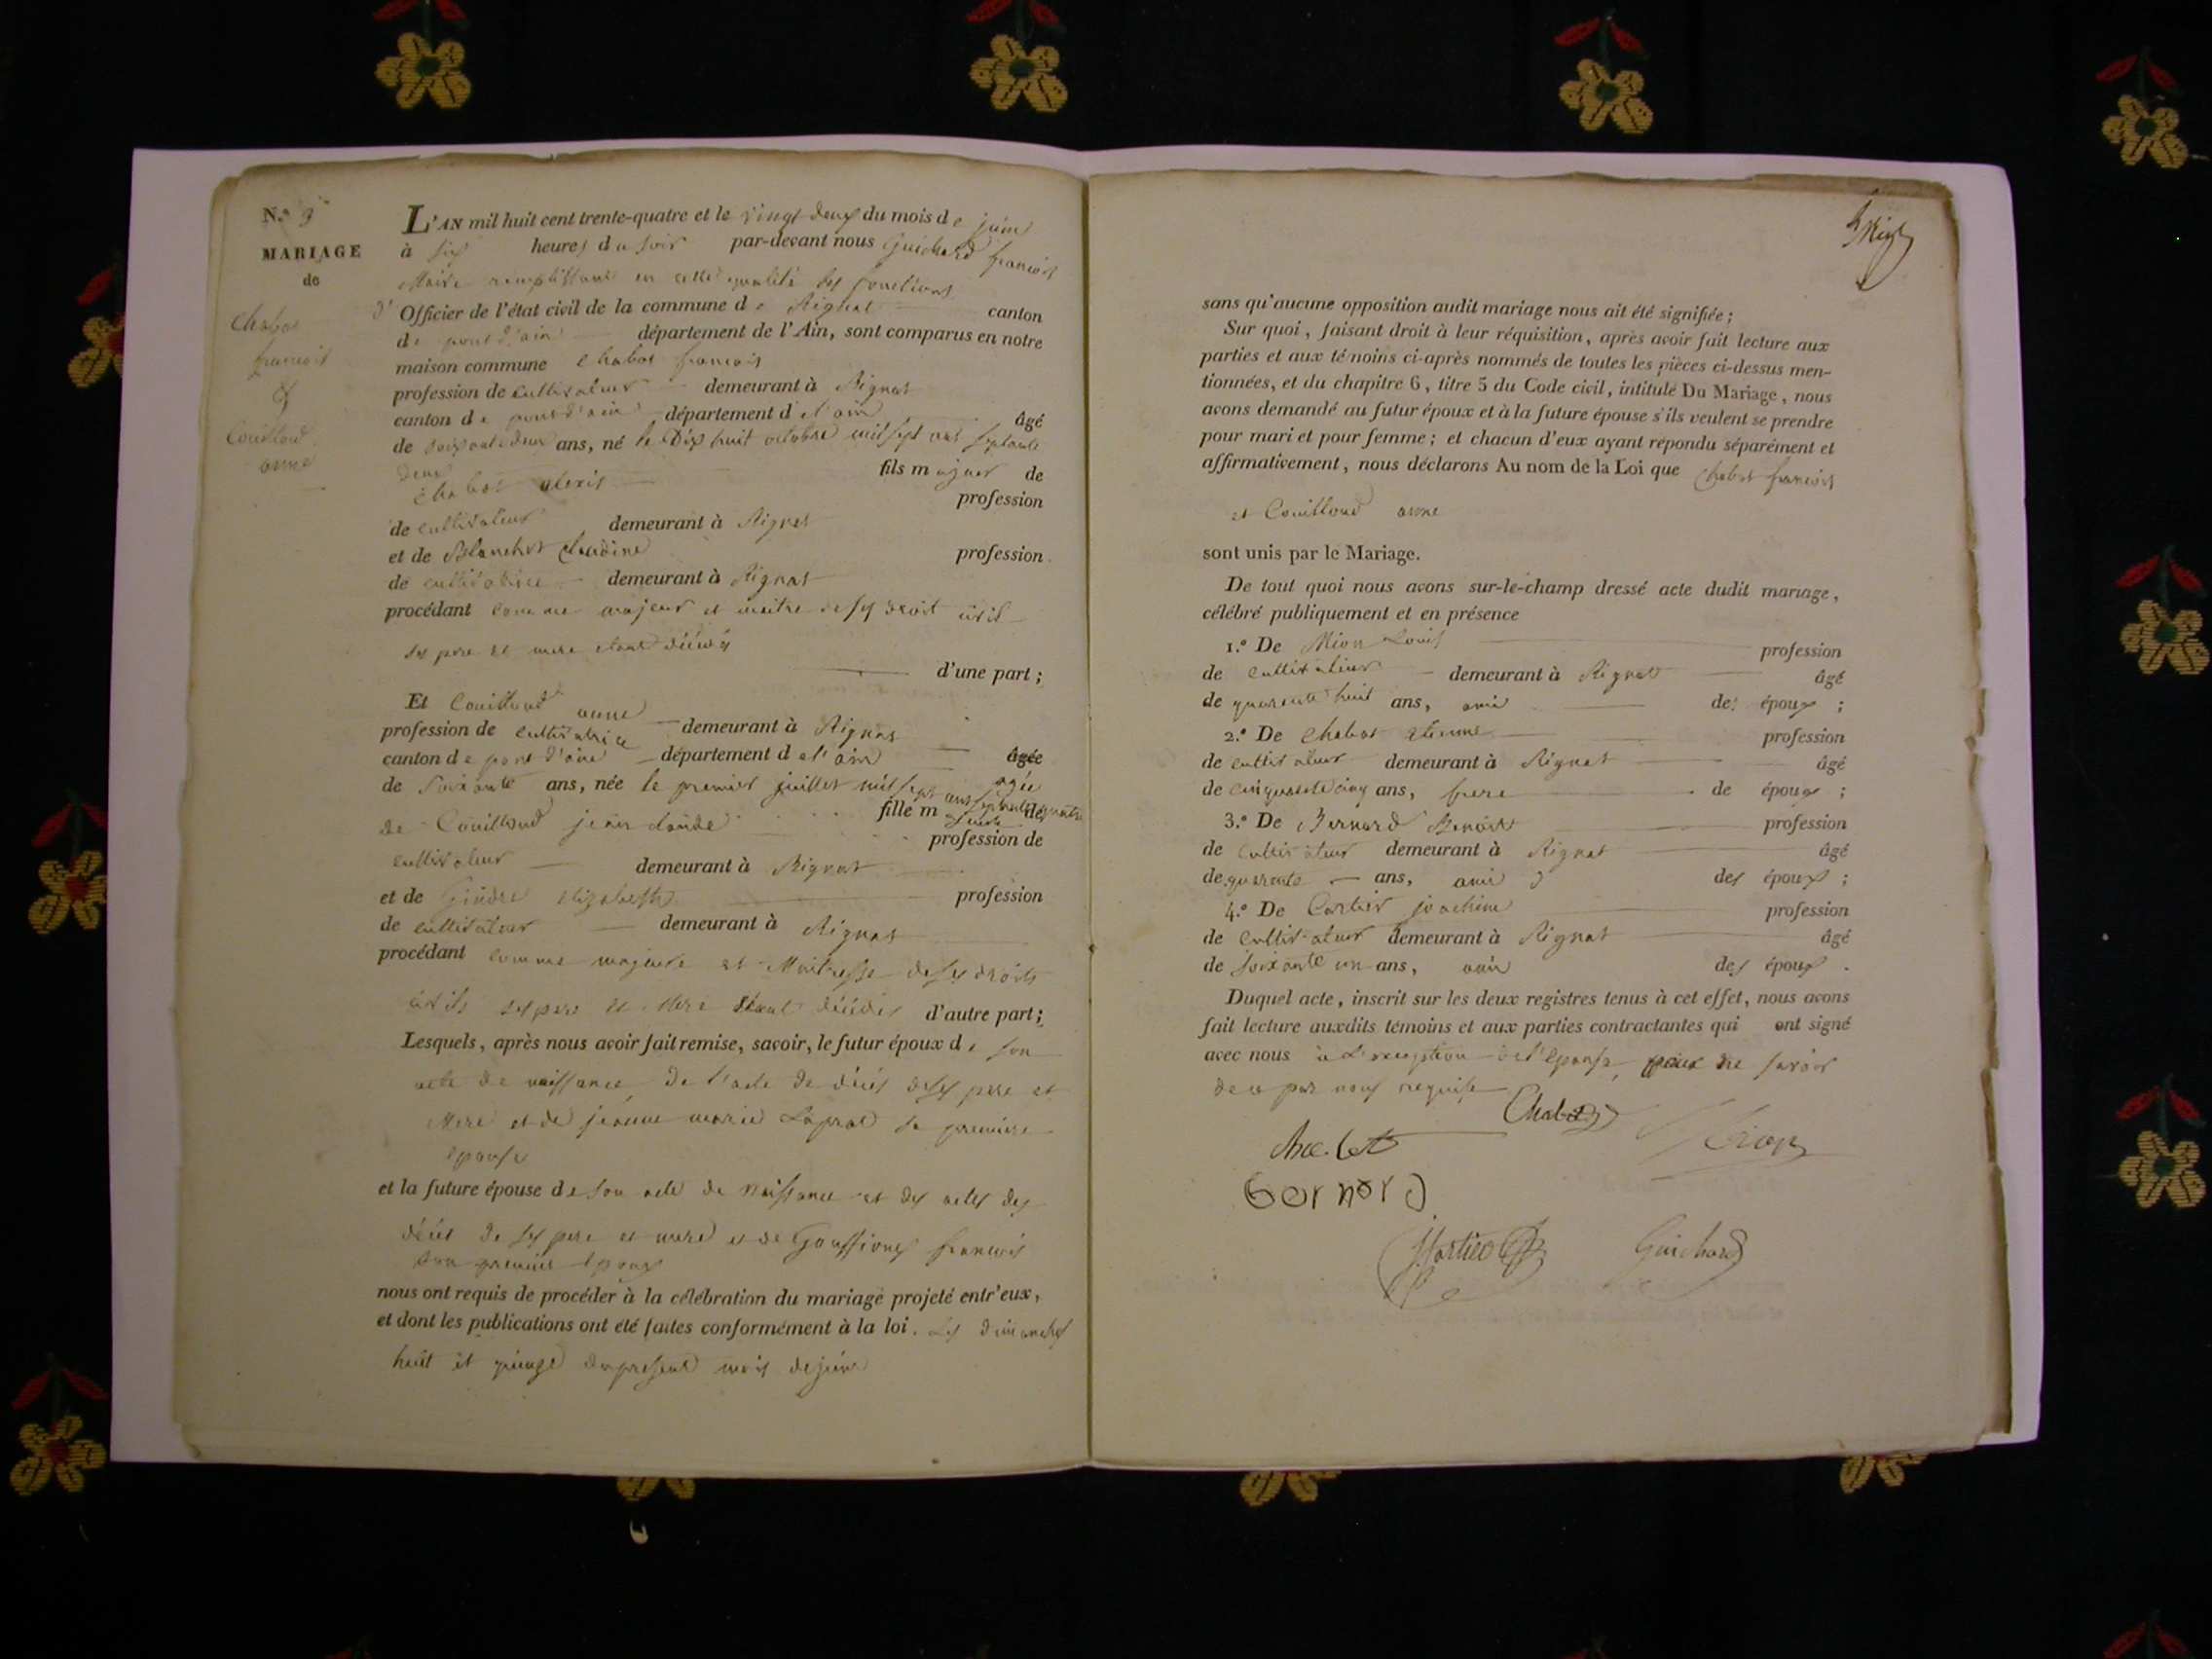 N.° 9
MARIAGE
de
Chabot
francois
&
Couilloud
anne
L'AN mil huit cent trente-quatre et le vingt deux du mois de juin
à six heures du soir par-devant nous Guichard francois
Maire remplissant en cette qualité les fonctions
d'Officier de l'état civil de la commune de Rignat canton
de pont d'ain département de l'Ain, sont comparus en notre
maison commune Chabot francois
profession de cultivateur demeurant à Rignat
canton de pont d'ain département de l'ain âgé
de soixante deux ans, né le Dix huit octobre mil sept cent septante
deux fils majeur de
Chabot alexis profession
de cultivateur demeurant à Rignat
et de Blanchet Claudine profession
de cultivatrice demeurant à Rignat
procédant comme majeur et maitre de ses droit civil
ses pere et mere etant décédés
d'une part;
Et Couilloud anne
profession de cultivatrice demeurant à Rignat
canton de pont d'ain département de l'ain âgée
de Soixante ans, née le premier juillet mil sept cent septante quatre agée
fille majeure de
de Couilloud jean claude profession de
cultivateur demeurant à Rignat
et de Gindre Elizabeth profession
de cultivateur demeurant à Rignat
procédant comme majeure et Maitresse de ses droits
civils ses pere et Mere étant décédés d'autre part;
Lesquels, après nous avoir fait remise, savoir, le futur époux de son
acte de naissance, de l'acte de décès de ses pere et
Mere et de jeanne marie Laprat sa premiere
epouse
et la future épouse de son acte de Naissance et des actes des
décès de ses pere et mere et de francois
son premier epoux
nous ont requis de procéder à la célébration du mariage projeté entr'eux,
et dont les publications ont été faites conformément à la loi. Les dimanches
huit et quinze du present mois de juin
sans qu'aucune opposition audit mariage nous ait été signifiée;
Sur quoi, faisant droit à leur réquisition, après avoir fait lecture aux
parties et aux témoins ci-après nommés de toutes les pièces ci-dessus men-
tionnées, et du chapitre 6, titre 5 du Code civil, intitulé Du Mariage, nous
avons demandé au futur époux et à la future épouse s'ils veulent se prendre
pour mari et pour femme; et chacun d'eux ayant répondu séparément et
affirmativement, nous déclarons Au nom de la Loi que Chabot francois
et Couilloud anne
sont unis par le Mariage.
De tout quoi nous avons sur-le-champ dressé acte dudit mariage,
célébré publiquement et en présence
1.° De Mion Louis profession
de cultivateur demeurant à Rignat âgé
de quarante huit ans, ami des époux;
2.° De Chabot etienne profession
de cultivateur demeurant à Rignat âgé
de cinquante cinq ans, frere de époux;
3.° De Bernard Benoit profession
de cultivateur demeurant à Rignat âgé
de quarante ans, ami des époux;
4.° De Cartier joachim profession
de cultivateur demeurant à Rignat âgé
de soixante un ans, ami des époux.
Duquel acte, inscrit sur les deux registres tenus à cet effet, nous avons
fait lecture auxdits témoins et aux parties contractantes qui ont signé
avec nous à l'exception de l'epouse pour ne savoir
de ce par nous requise
Chabot
Chabot Mion
bernard
Cartier Guichard